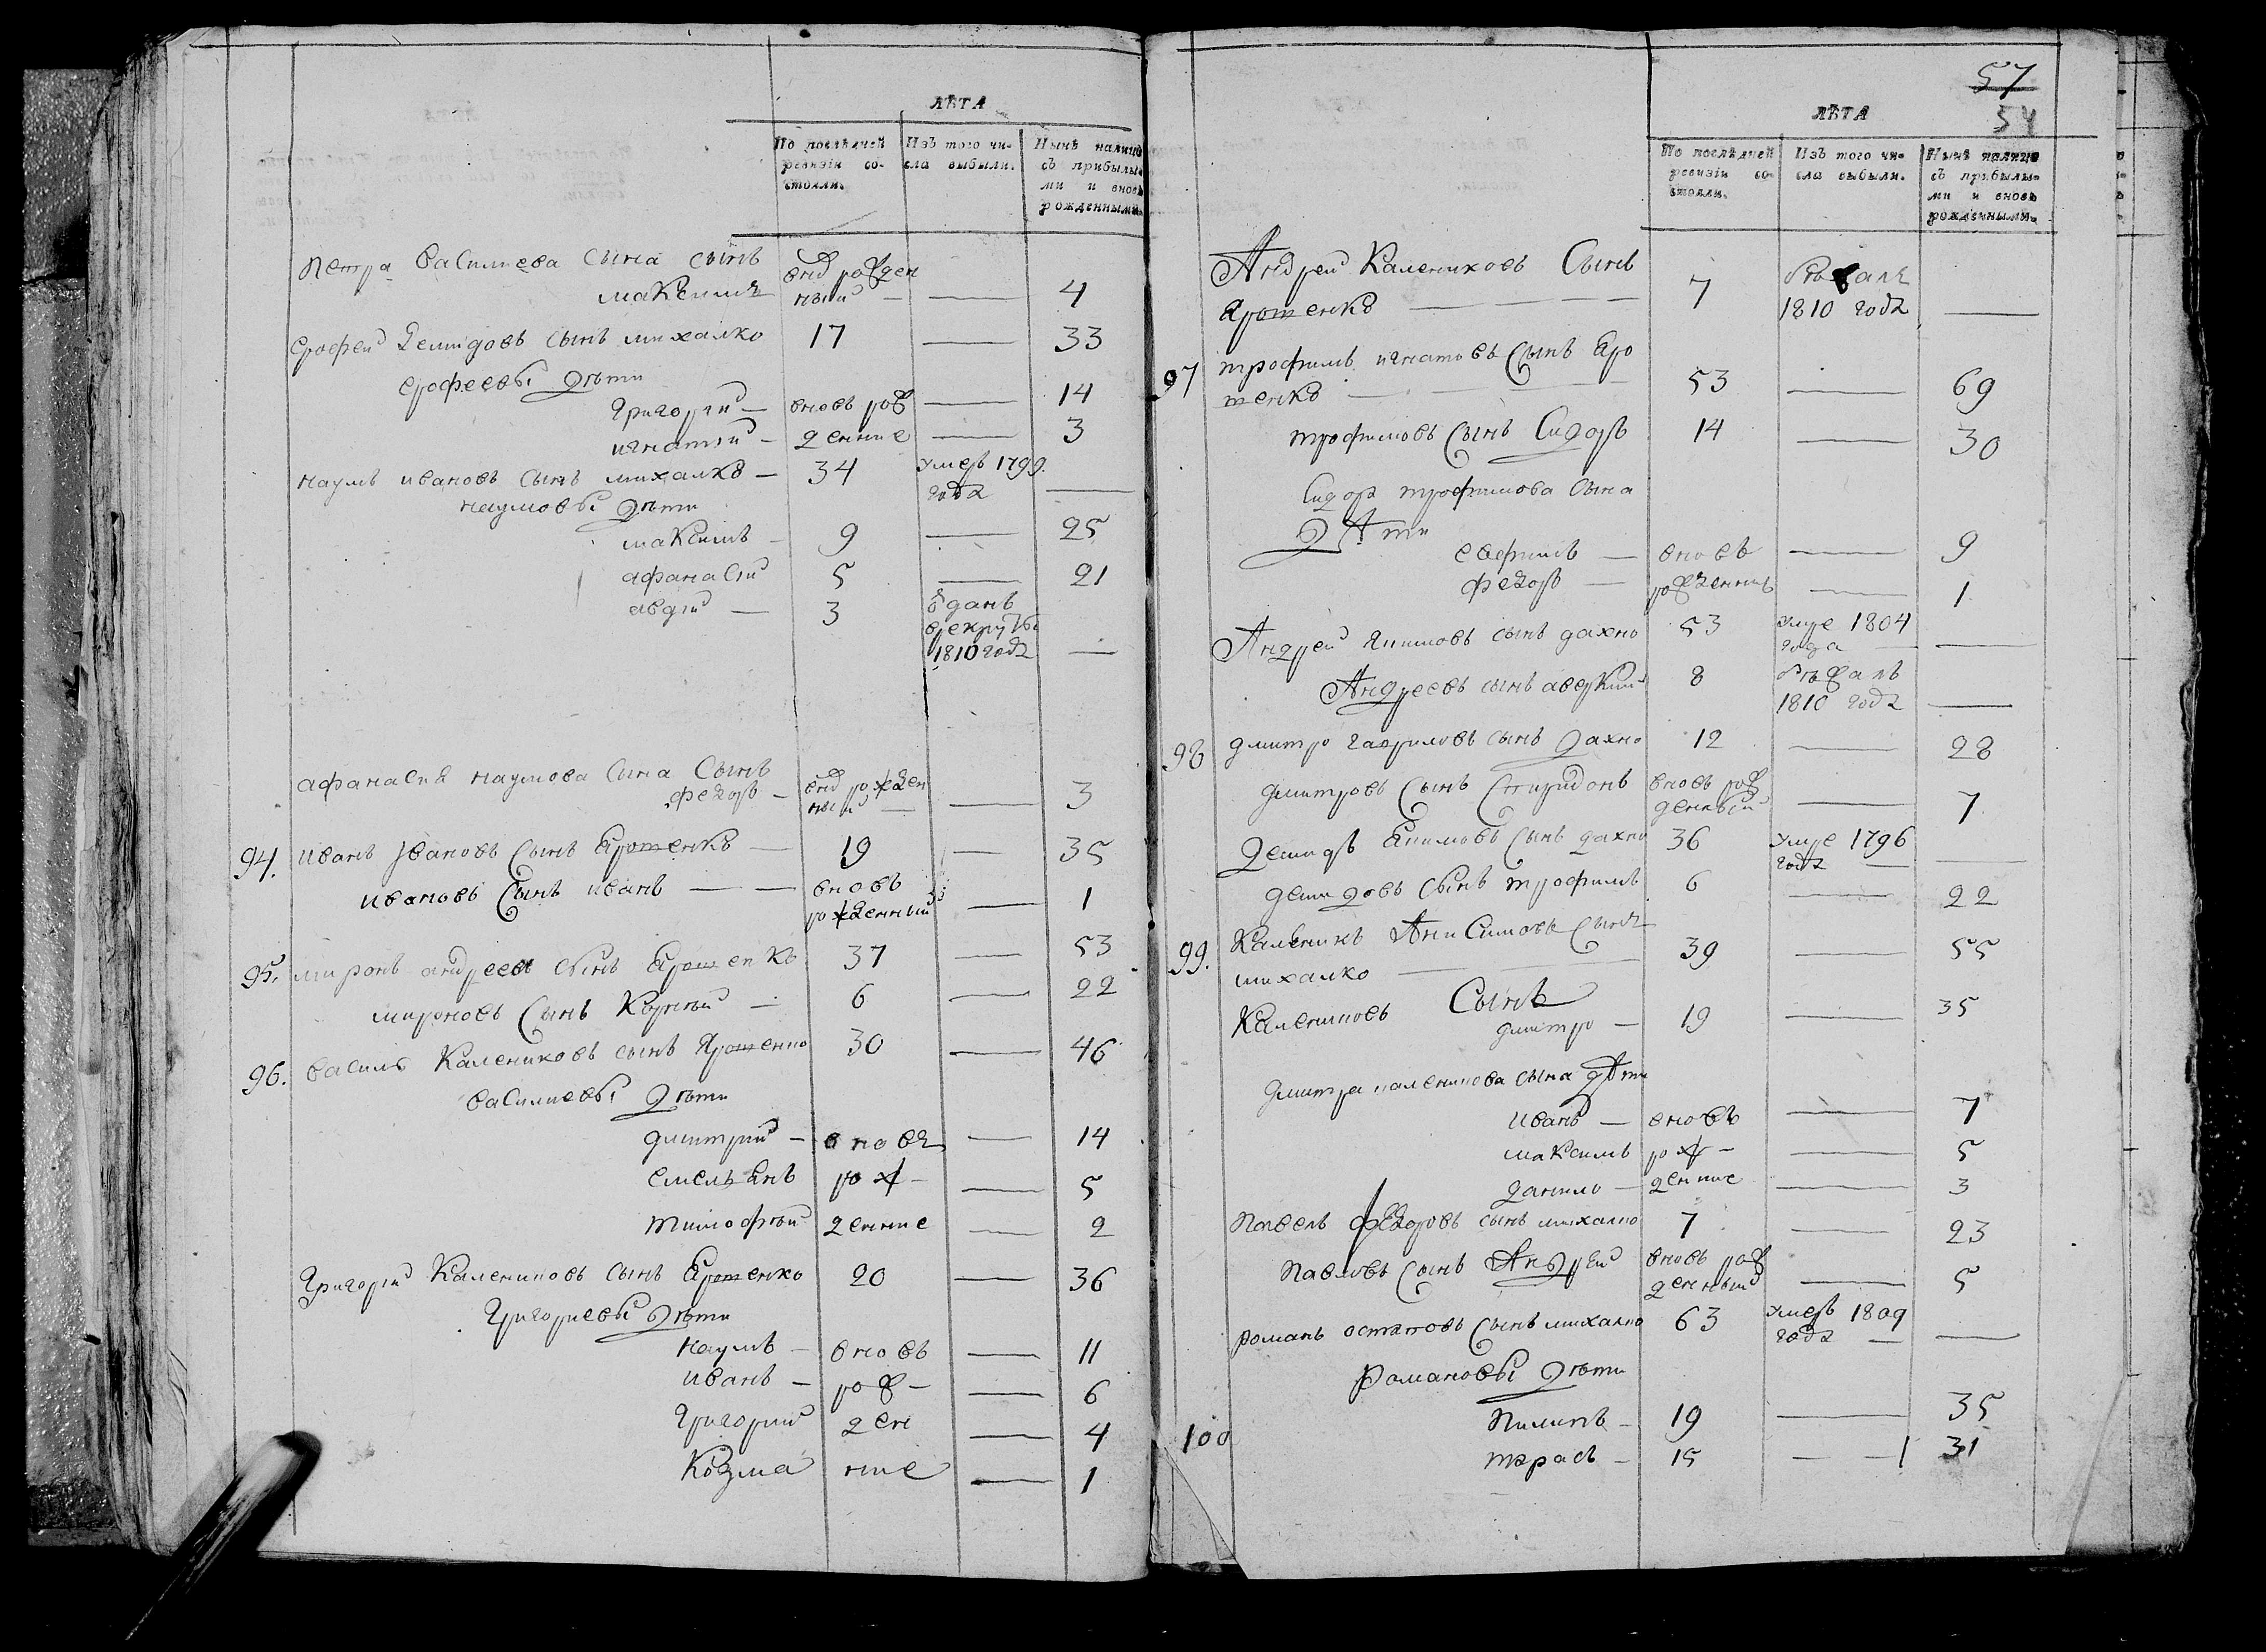 ЛѢТА
По послѣдней ревизіи состояли.
Изъ того числа выбыли.
Нынѣ налицо съ прибылыми и вновь рожденными.
Петра Василиева сына сынъ внӧ рожден
Максимъ ный — — 4
Ерофей Демидовъ сынъ михалко 17 — 33
Ерофеевы дѣти
Григорий — вновь рож — 14
игнатій — денние — 3
наумъ ивановъ сынъ михалко — 34 умеръ 1799
года —
наумовы дѣти
максимъ — 9 — 25
афанасій 5 — 21
авдій — 3 ѿданъ
в рекруты
1810 года —
афанасия наумова сина сынъ
федоръ — рожден
ный — — 3
94. иванъ Ивановъ сынъ Ярошенко — 19 — 35
ивановъ сынъ иванъ — — вновь
рожденный — 1
95. миронъ андреевъ сынъ Ярошенко 37 — 53
мироновъ сынъ Корнѣй — 6 — 22
96. василь Калениковъ сынъ Ярошенко 30 — 46
василиевы дѣти
дмитрий — вновь — 14
емельянъ рож — — 5
тимофѣй денние — 2
Григорий Калениковъ сынъ Ярошенко 20 — 36
Григориевы дѣти
наумъ — вновь — 11
иванъ — рож — — 6
Григорий ден — 4
Козма ние — 1
57
54
ЛѢТА
По послѣдней ревизіи состояли.
Изъ того числа выбыли.
Нынѣ налицо съ прибылыми и вновь рожденными.
Андрей Калениковъ Сынъ
Ярошенко — 7 1810 года —
97 трофимъ игнатовъ сынъ Яро
шенко — 53 — 69
трофимовъ сынъ Сидоръ 14 — 30
Сидора трофимова сына
дѣти
евфимъ — вновь — 9
федоръ — рожденние — 1
Андрей Якимовъ сынъ дахно 53 умре 1804
года — —
Андреевъ сынъ аверкий 8
1810 года —
98 дмитро гавриловъ сынъ дахно 12 — 28
дмитровъ сынъ Спиридонъ вновь рож
денный — 7
Демидъ Якимовъ сынъ дахно 36 умре 1796
года — —
демидовъ сынъ трофимъ 6 — 22
99. Каленикъ Анисимовъ сынъ
михалко — 39 — 55
Калениковъ Сынъ
дмитро — 19 — 35
дмитра каленикова сына дѣти
иванъ — вновь — 7
максимъ рож — — 5
данило — денние — 3
Павелъ Федоровъ сынъ михалко 7 — 23
Павловъ сынъ Андрей вновь рож
денный — 5
романъ остаповъ сынъ михалко 63 умеръ 1809
года — —
Романовы дѣти
Пилипъ — 19 — 35
100 тарасъ — 15 — — 31